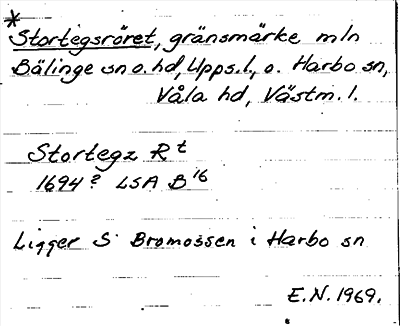 *
Stortegsröret, gränsmärke mln
Bälinge sn o. hd, Upps. l., o. Harbo sn,
Våla hd, Västm. l.
Stortegz Rt
1694? LSA B16
Ligger S Bromossen i Harbo sn
E.N. 1969.